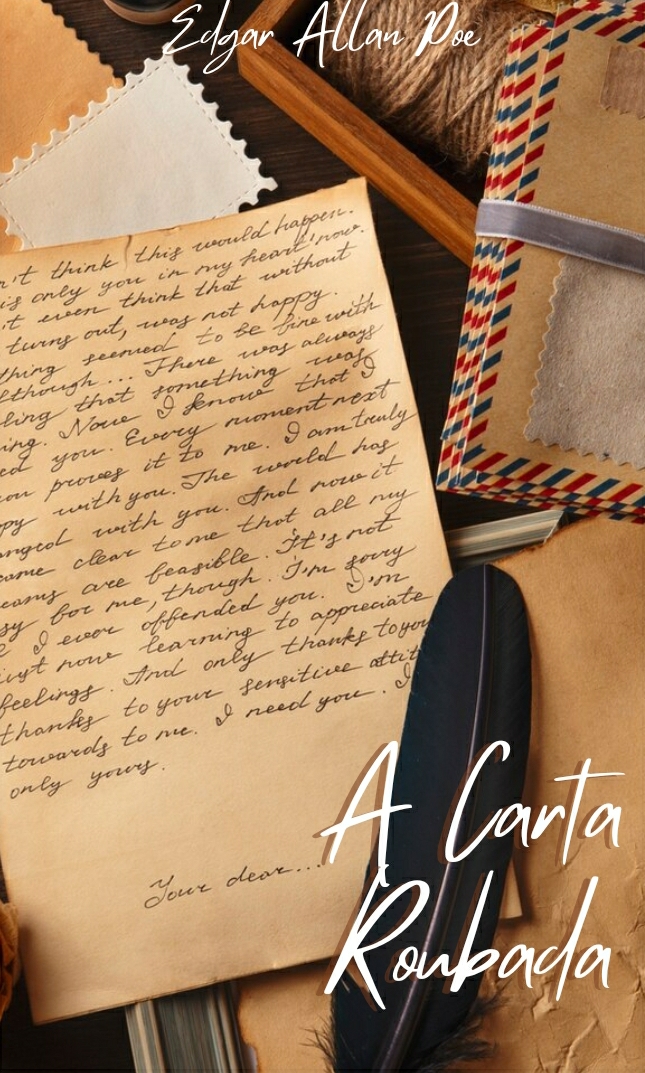 Edgar Allan Poe
n't think this would happen.
is only you in my heart now.
't even think that without
turns out, was not happy.
thing seemed to be fine with
lthough... There was always
ling that something was
ing. Now I know that I
ed you. Every moment next
ou proves it to me. I am truly
ppy with you. The world has
anged with you. And now it
ame clear to me that all my
eams are feasible. It's not
sy for me, though. I'm sorry
I ever offended you. I'm
ust now learning to appreciate
feelings. And only thanks to you
thanks to your sensitive attit
towards to me. I need you. I
only yours.
Your dear...
A Carta
Roubada